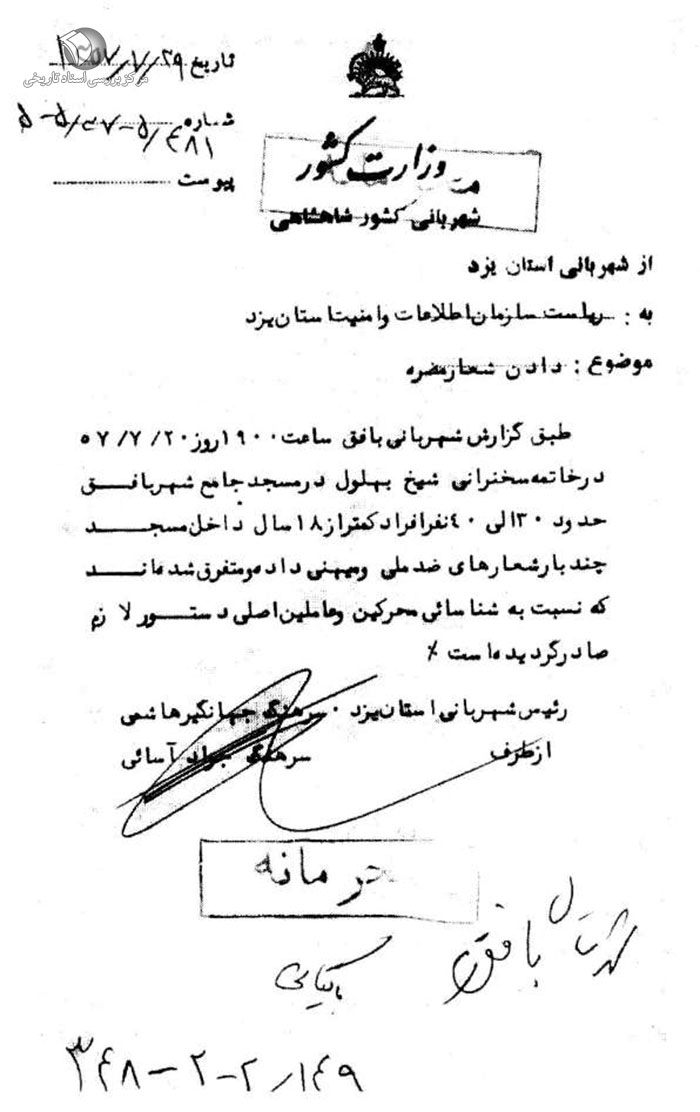 مرکز بررسی اسناد تاریخی
تاریخ ۱۳۵۷/۷/۲۹
شماره ۵-۵/۲۷-۵/٤۸۱
پیوست
وزارت کشور
شهربانی کشور شاهنشاهی
از شهربانی استان یزد
به : ریاست سازمان اطلاعات وامنیت استان یزد
موضوع : دادن شعار مضره
طبق گزارش شهربانی بافق ساعت ۱۹۰۰ روز ۵۷/۷/۲۰
درخاتمه سخنرانی شیخ بهلول درمسجد جامع شهر بافق
حدود ۳۰ الی ٤۰ نفر افراد کمتر از ۱۸ سال داخل مسجد
چند بار شعارهای ضد ملی ومیهنی داده ومتفرق شده اند
که نسبت به شناسائی محرکین وعاملین اصلی دستور لازم
صادر گردیده است ٪
رئیس شهربانی استان یزد ۰ سرهنگ جهانگیر هاشمی
از طرف سرهنگ جواد آسائی
محرمانه
بافق
۳٤۸-۲-۲/۱٤۹